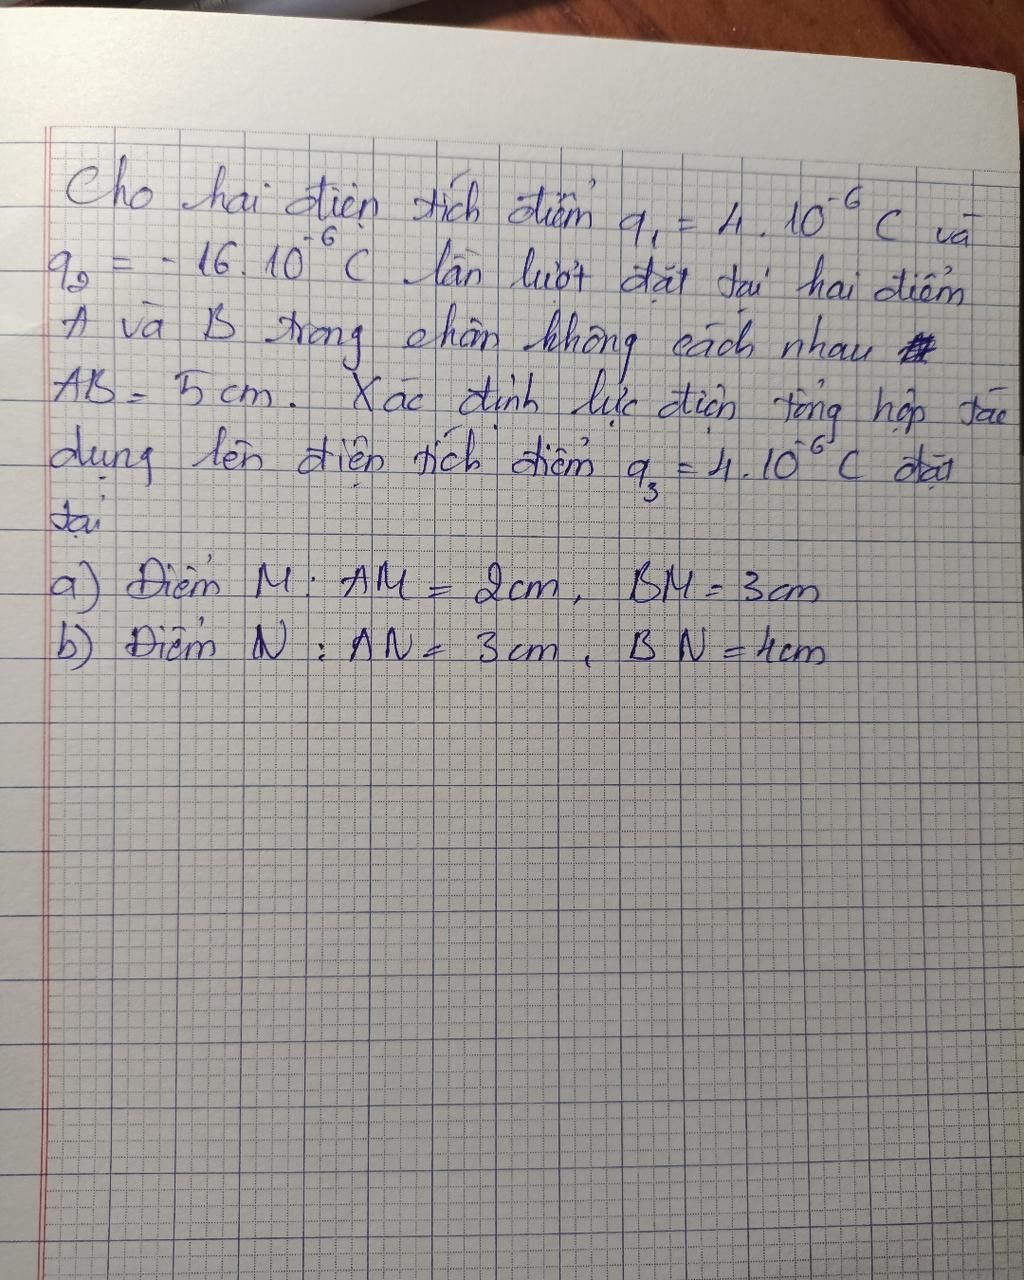 Cho hai điện tích điểm q₁ = 4. 10⁻⁶ C và
q₂ = - 16. 10⁻⁶ C lần lượt đặt tại hai điểm
A và B trong chân không cách nhau
AB = 5 cm. Xác định lực điện tổng hợp tác
dụng lên điện tích điểm q₃ = 4. 10⁻⁶ C đặt
tại:
a) Điểm M: AM = 2cm, BM = 3 cm
b) Điểm N : AN = 3 cm, BN = 4cm